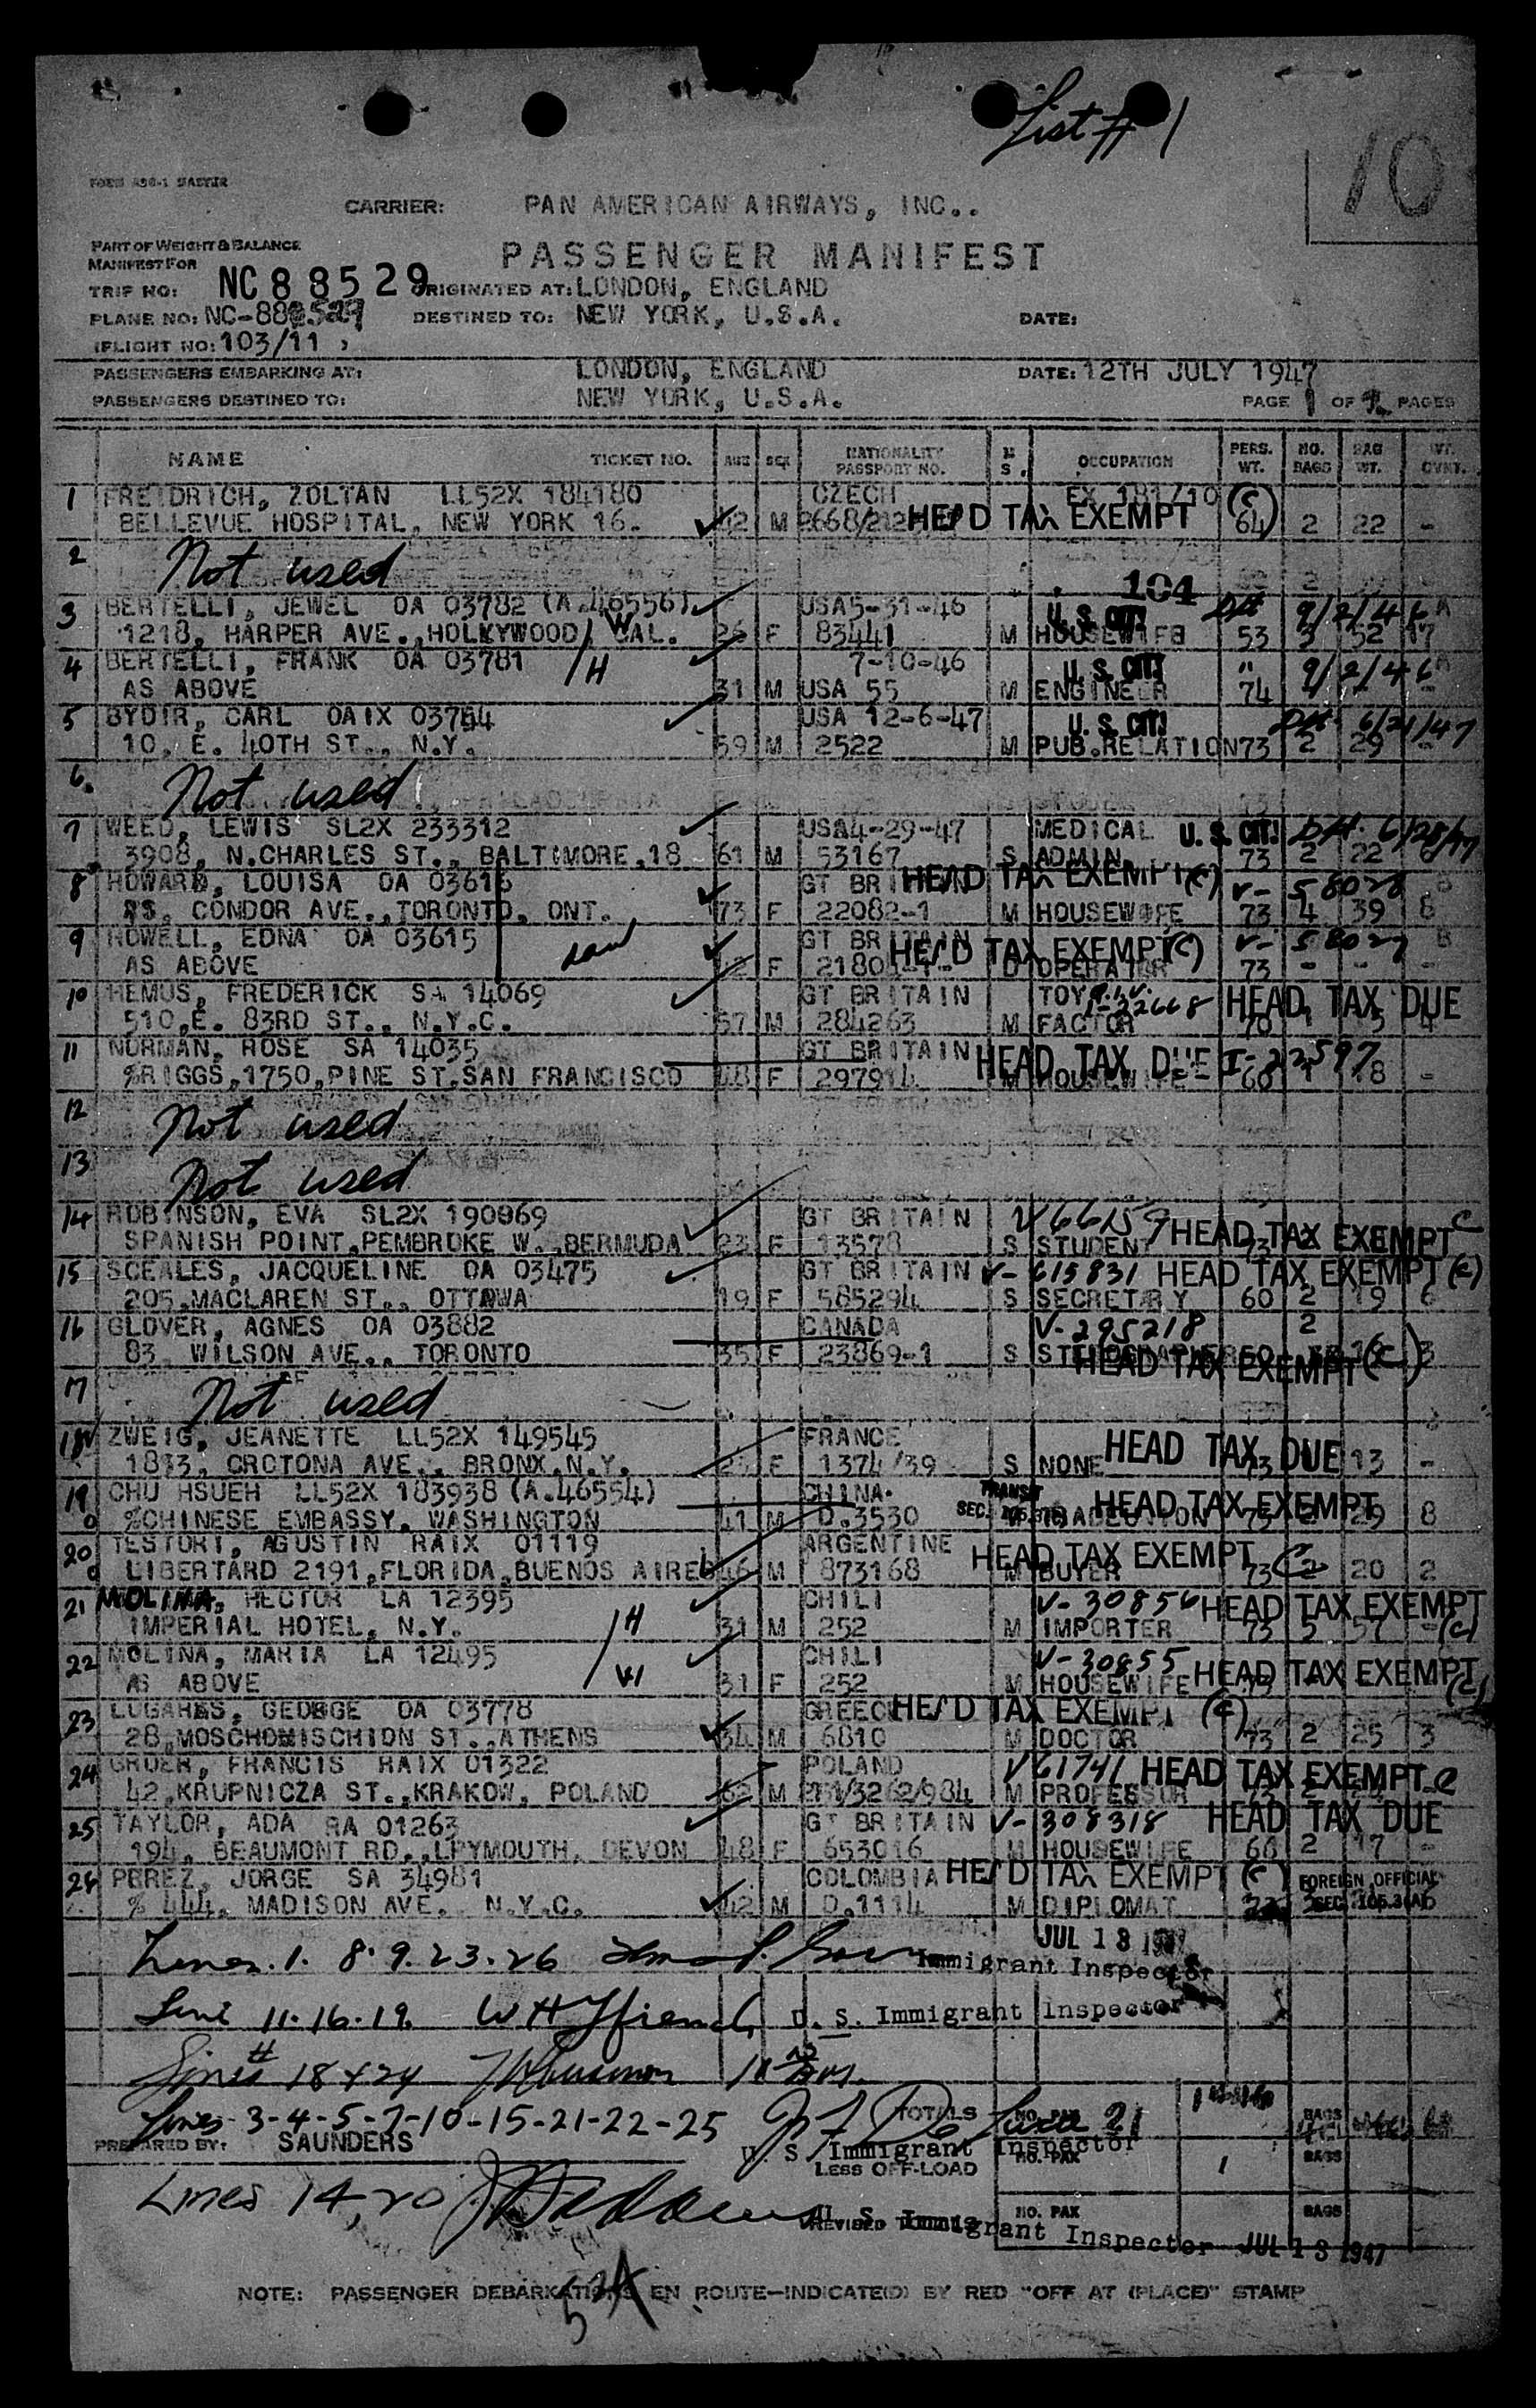 List # 1
10
FORM
CARRIER: PAN AMERICAN AIRWAYS, INC..
PART OF WEIGHT & BALANCE
MANIFEST FOR
PASSENGER MANIFEST
TRIP NO: NC88529 ORIGINATED AT: LONDON, ENGLAND
PLANE NO: NC-88529 DESTINED TO: NEW YORK, U.S.A. DATE:
(FLIGHT NO: 103/11
PASSENGERS EMBARKING AT: LONDON, ENGLAND DATE: 12TH JULY 1947
PASSENGERS DESTINED TO: NEW YORK, U.S.A. PAGE 1 OF PAGES
NAME TICKET NO. AGE SEX NATIONALITY PASSPORT NO. M S. OCCUPATION PERS. WT. NO. BAGS BAG WT. WT. OVWT.
1 FREIDRICH, ZOLTAN LL52X 184180 CZECH EX 181710 (C)
BELLEVUE HOSPITAL, NEW YORK 16. 42 M HEAD TAX EXEMPT 64 2 22 -
2 Not used
104
3 BERTELLI, JEWEL OA 03782 (A.46556) USA5-31-46 U.S. CIT! 9/2/46
1218, HARPER AVE., HOLLYWOOD, CAL. W 26 F 83441 M HOUSEWIFE 53 3 52 17
4 BERTELLI, FRANK OA 03781 H 7-10-46 U.S. CIT! " 9/2/46
AS ABOVE 31 M USA 55 M ENGINEER 74 - - -
5 BYOIR, CARL OAIX 03764 USA 12-6-47 U.S. CIT! 6/21/47
10, E. 40TH ST., N.Y. 59 M 2522 M PUB.RELATION 73 2 29 -
6. Not used
7 WEED, LEWIS SL2X 233312 USA4-29-47 MEDICAL U.S. CIT! 6/28/47
3908, N.CHARLES ST., BALTIMORE,18 61 M 53167 S ADMIN. 73 2 22
8 HOWARD, LOUISA OA 03616 GT BRITAIN HEAD TAX EXEMPT (C) V- 58028
CONDOR AVE., TORONTO, ONT. 73 F 22082-1 M HOUSEWIFE 73 4 39 8
9 HOWELL, EDNA OA 03615 GT BRITAIN HEAD TAX EXEMPT (C) V- 58027
AS ABOVE F OPERATOR 73 - - -
10 HEMUS, FREDERICK SA 14069 GT BRITAIN TOY I-22668 HEAD TAX DUE
510,E. 83RD ST., N.Y.C. 57 M 284263 M FACTOR 70
11 NORMAN, ROSE SA 14035 GT BRITAIN HEAD TAX DUE I-22597
%RIGGS,1750,PINE ST,SAN FRANCISCO 48 F 297914 M HOUSEWIFE 60 1 18 -
12 Not used
13 Not used
14 ROBINSON, EVA SL2X 190869 GT BRITAIN V66159 HEAD TAX EXEMPT C
SPANISH POINT,PEMBROKE W.,BERMUDA 23 F 13578 S STUDENT
15 SCEALES, JACQUELINE OA 03475 GT BRITAIN V-615831 HEAD TAX EXEMPT (C)
205,MACLAREN ST., OTTAWA 19 F 585294 S SECRETARY 60 2 19 6
16 GLOVER, AGNES OA 03882 CANADA V-295218 2
83, WILSON AVE., TORONTO 35 F 23869-1 S HEAD TAX EXEMPT (C) 3
17 Not used
18 ZWEIG, JEANETTE LL52X 149545 FRANCE HEAD TAX DUE
1813, CROTONA AVE., BRONX,N.Y. F 1374/39 S NONE 73 13 -
19 CHU HSUEH LL52X 183938 (A.46554) CHINA. TRANSIT HEAD TAX EXEMPT
%CHINESE EMBASSY, WASHINGTON 41 M D.3530 SEC. 29 8
20 TESTORI, AGUSTIN RAIX 01119 ARGENTINE HEAD TAX EXEMPT C
LIBERTARD 2191,FLORIDA,BUENOS AIRES 46 M 873168 M BUYER 73 2 20 2
21 MOLINA, HECTOR LA 12395 CHILI V-30856 HEAD TAX EXEMPT (C)
IMPERIAL HOTEL, N.Y. H 31 M 252 M IMPORTER 73 5 57 -
22 MOLINA, MARIA LA 12495 CHILI V-30855 HEAD TAX EXEMPT (C)
AS ABOVE W 31 F 252 M HOUSEWIFE 73
23 LUGARAS, GEORGE OA 03778 GREECE HEAD TAX EXEMPT (C)
28,MOSCHOMISCHION ST.,ATHENS 34 M 6810 M DOCTOR 73 2 25 3
24 GROER, FRANCIS RAIX 01322 POLAND V61741 HEAD TAX EXEMPT C
42,KRUPNICZA ST.,KRAKOW, POLAND 62 M M PROFESSOR
25 TAYLOR, ADA RA 01263 GT BRITAIN V-308318 HEAD TAX DUE
194, BEAUMONT RD.,LPYMOUTH, DEVON 48 F 653016 M HOUSEWIFE 68 2 17 -
26 PEREZ, JORGE SA 34981 COLOMBIA HEAD TAX EXEMPT (C) FOREIGN OFFICIAL
% 444, MADISON AVE. N.Y.C. 42 M D.1114 M DIPLOMAT SEC.
JUL 13 1947
Lines. 1. 8. 9. 23. 26 Immigrant Inspector
Line 11. 16. 19. U. S. Immigrant Inspector
Lines # 18 + 24
Lines 3-4-5-7-10-15-21-22-25 TOTALS NO. PAX 21 BAGS
PREPARED BY: SAUNDERS U. S. Immigrant Inspector
LESS OFF-LOAD NO. PAX 1 BAGS
Lines 14, 20
REVISED TOTALS NO. PAX BAGS
U. S. Immigrant Inspector JUL 13 1947
NOTE: PASSENGER DEBARKATIONS EN ROUTE—INDICATE(D) BY RED "OFF AT (PLACE)" STAMP